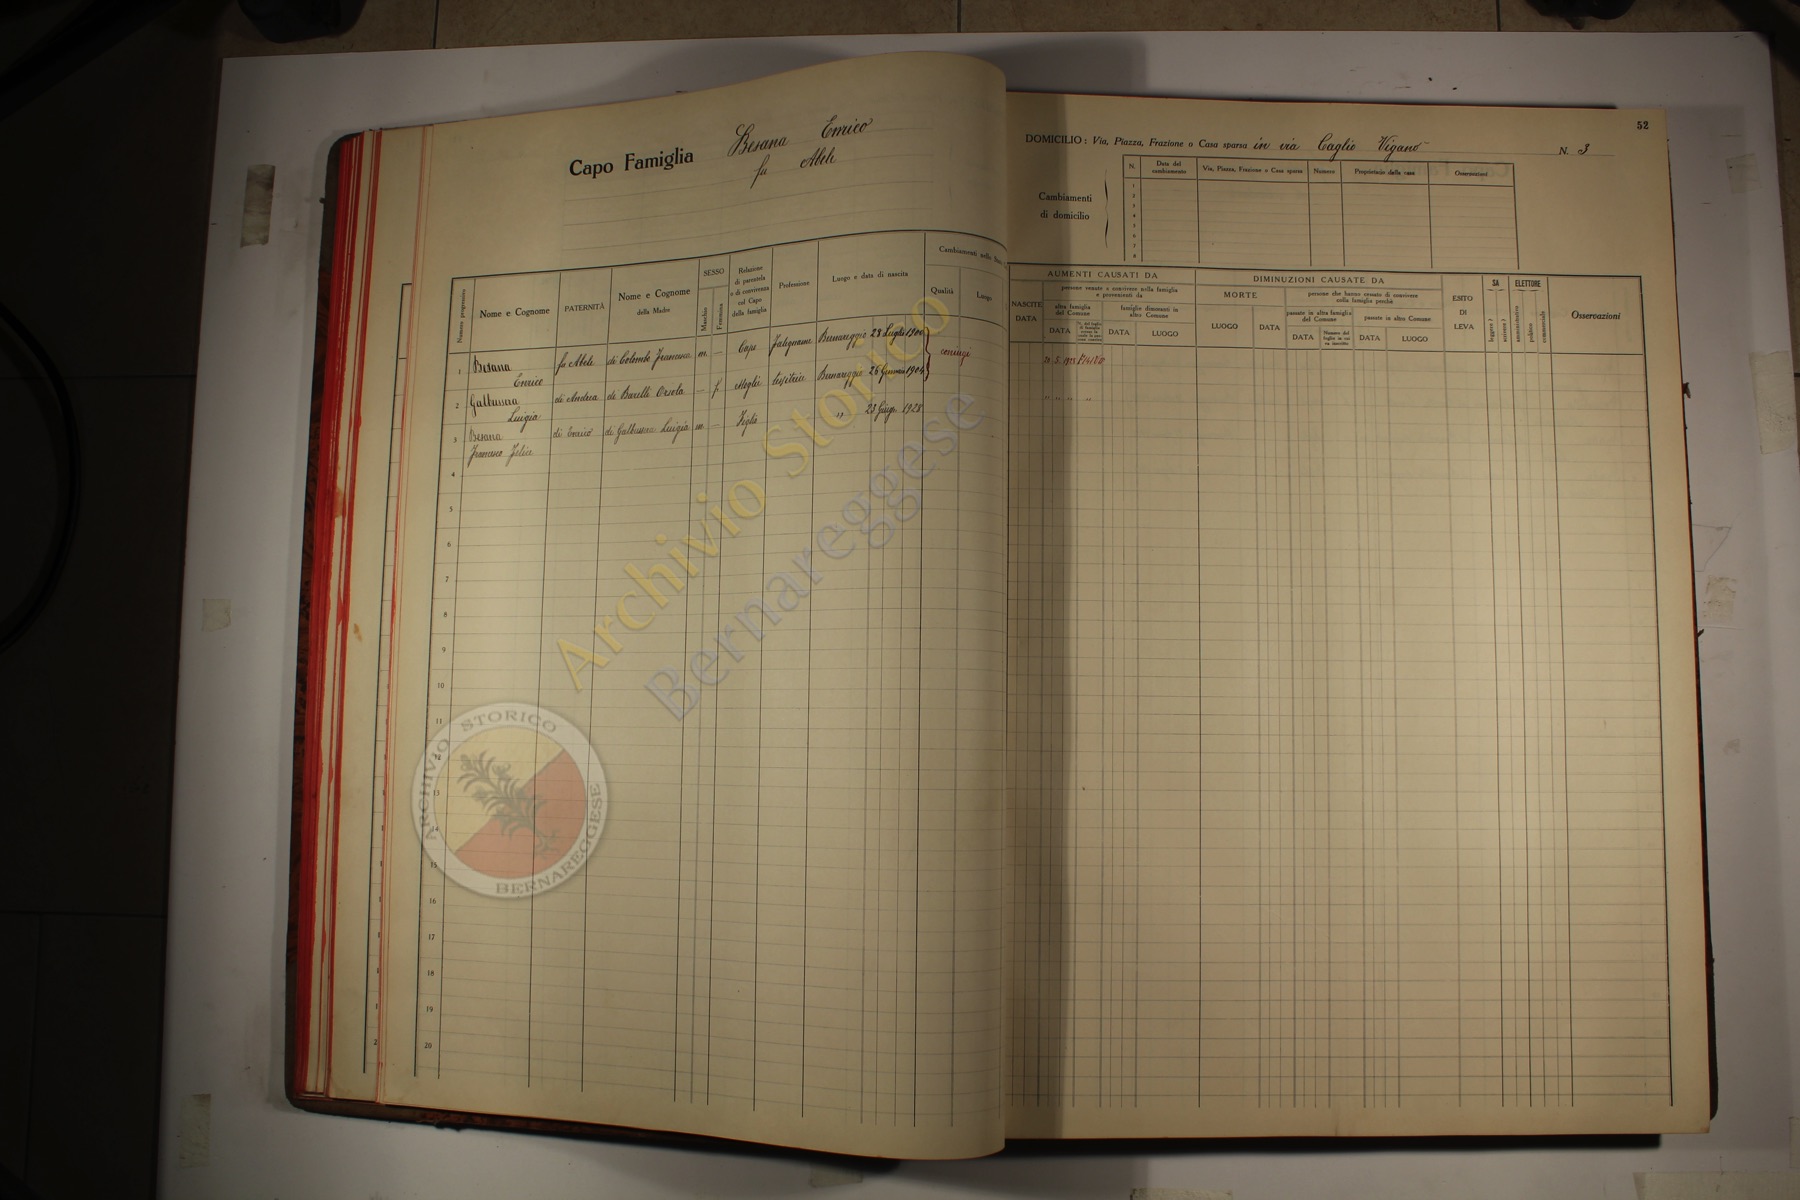 Capo Famiglia Besana Enrico
fu Abele
52
DOMICILIO : Via, Piazza, Frazione o Casa sparsa in via Caglio Viganò N. 3
Cambiamenti
di domicilio
N. Data del cambiamento Via, Piazza, Frazione o Casa sparsa Numero Proprietario della casa Osservazioni
1
2
3
4
5
6
7
8
Numero progressivo
Nome e Cognome
PATERNITÀ
Nome e Cognome
della Madre
SESSO
Maschio
Femmina
Relazione
di parentela
o di convivenza
col Capo
della famiglia
Professione
Luogo e data di nascita
Cambiamenti nello
Qualità
Luogo
AUMENTI CAUSATI DA
NASCITE
DATA
persone venute a convivere nella famiglia
e provenienti da
altra famiglia
del Comune
famiglie dimoranti in
altro Comune
DATA
DATA
LUOGO
DIMINUZIONI CAUSATE DA
MORTE
LUOGO
DATA
persone che hanno cessato di convivere
nella famiglia perchè
passate in altra famiglia
del Comune
passate in altro Comune
DATA
DATA
LUOGO
ESITO
DI
LEVA
SA
leggere ?
scrivere ?
ELETTORE
amministrativo
politico
commerciale
Osservazioni
1 Besana
Enrico
fu Abele di Colombo Francesca m — Capo Falegname Bernareggio 28 Luglio 1900
coniugi
2 Galbussera
Luigia
di Andrea de Barelli Orsola — f Moglie tessitrice Bernareggio 26 Gennaio 1904
3 Besana
Francesco Felice
di Enrico di Galbussera Luigia m — Figlio " 23 Giug. 1928
" " " " "
4
5
6
7
8
9
10
11
12
13
14
15
16
17
18
19
20
Archivio Storico
Bernareggese
ARCHIVIO STORICO
BERNAREGGESE